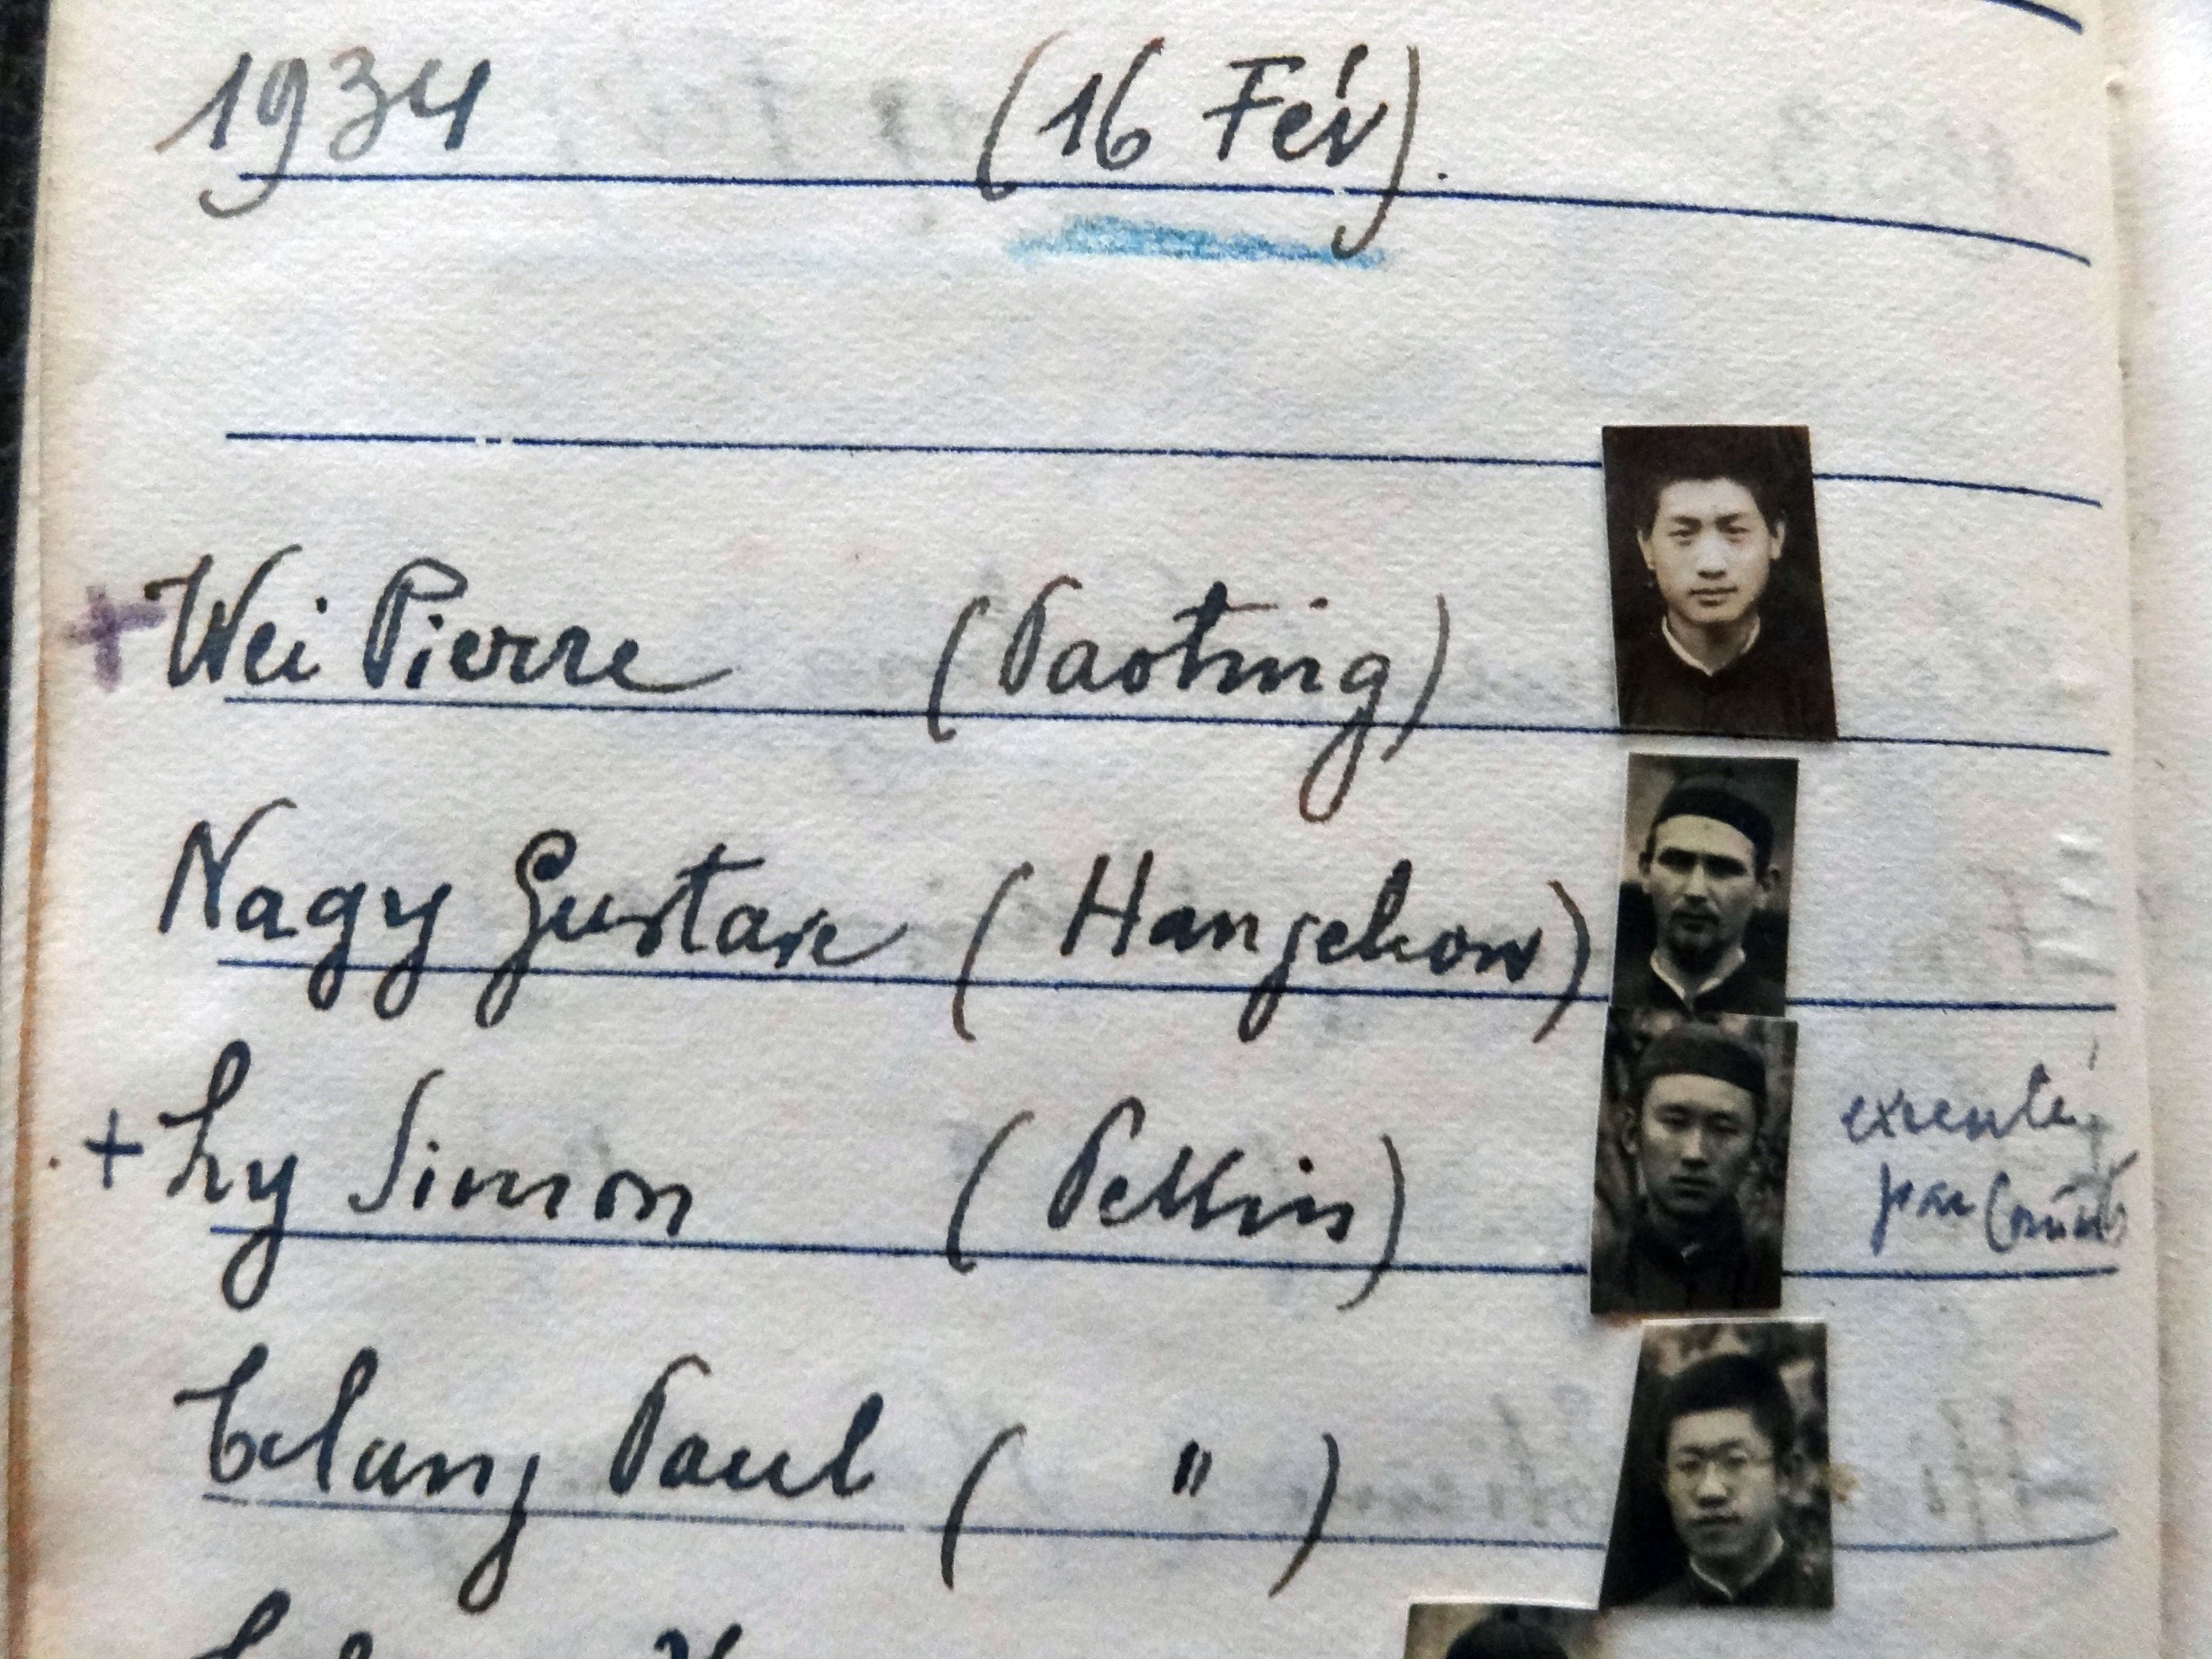 1934 (16 Fév).
+ Wei Pierre (Paoting)
Nagy Gustave (Hangchow)
+ Ly Simon (Pekin) exécuté
par
Tchang Paul ( " )